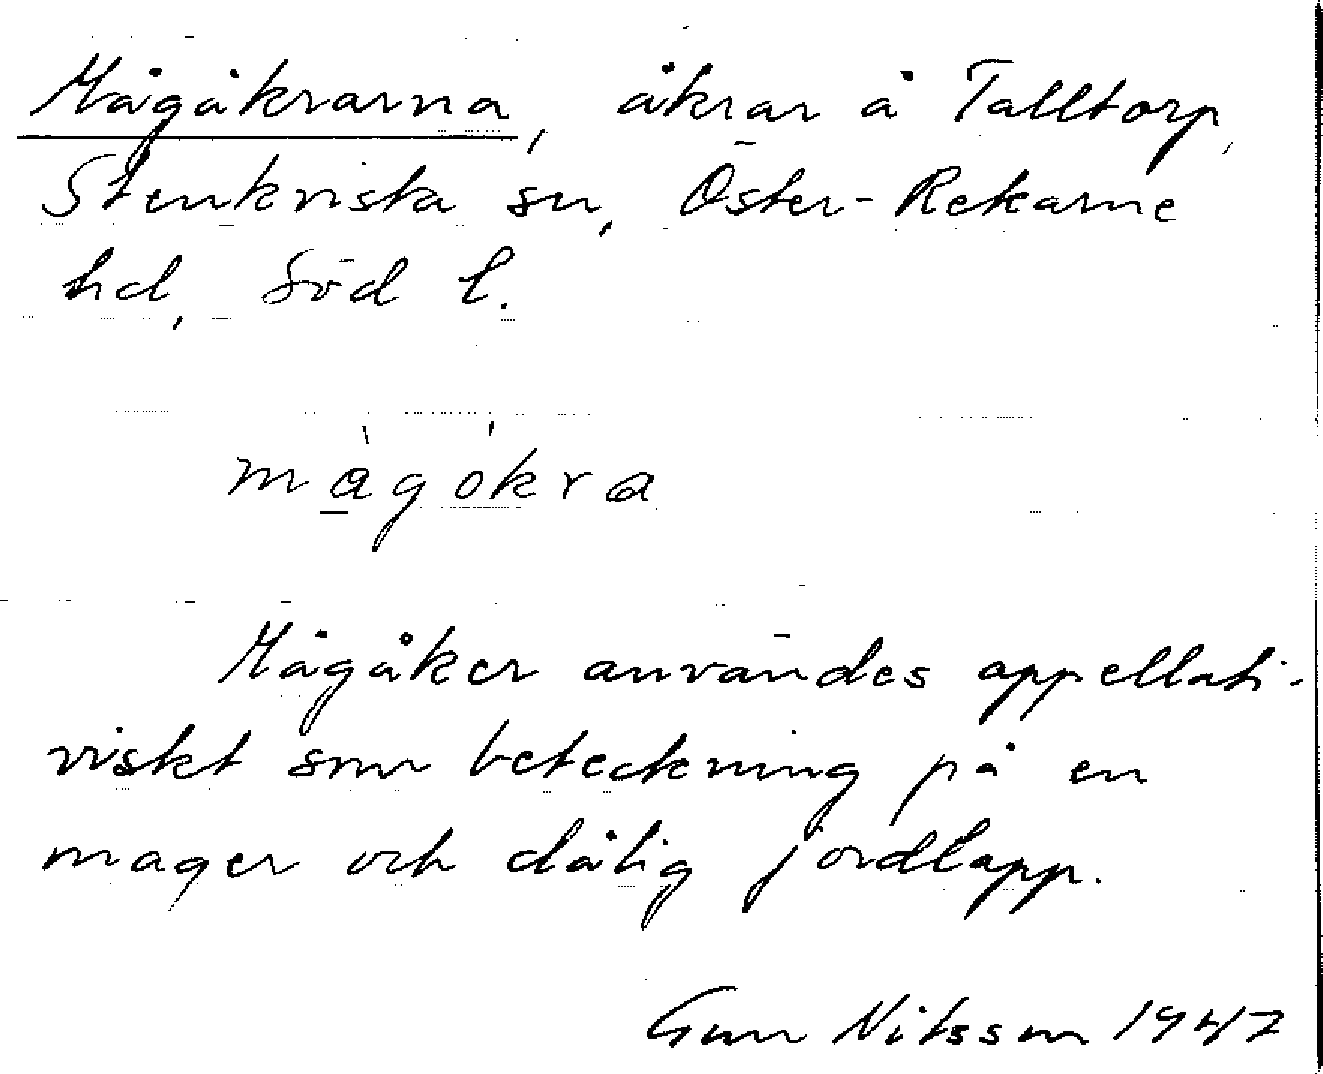 Mågåkrarna, åkrar å Talltorp,
Stenkvista sn, Öster-Rekarne
hd, Söd l.
màgókra
Mågåker användes appellati-
viskt som beteckning på en
mager och dålig jordlapp.
Gun Nilsson 1947